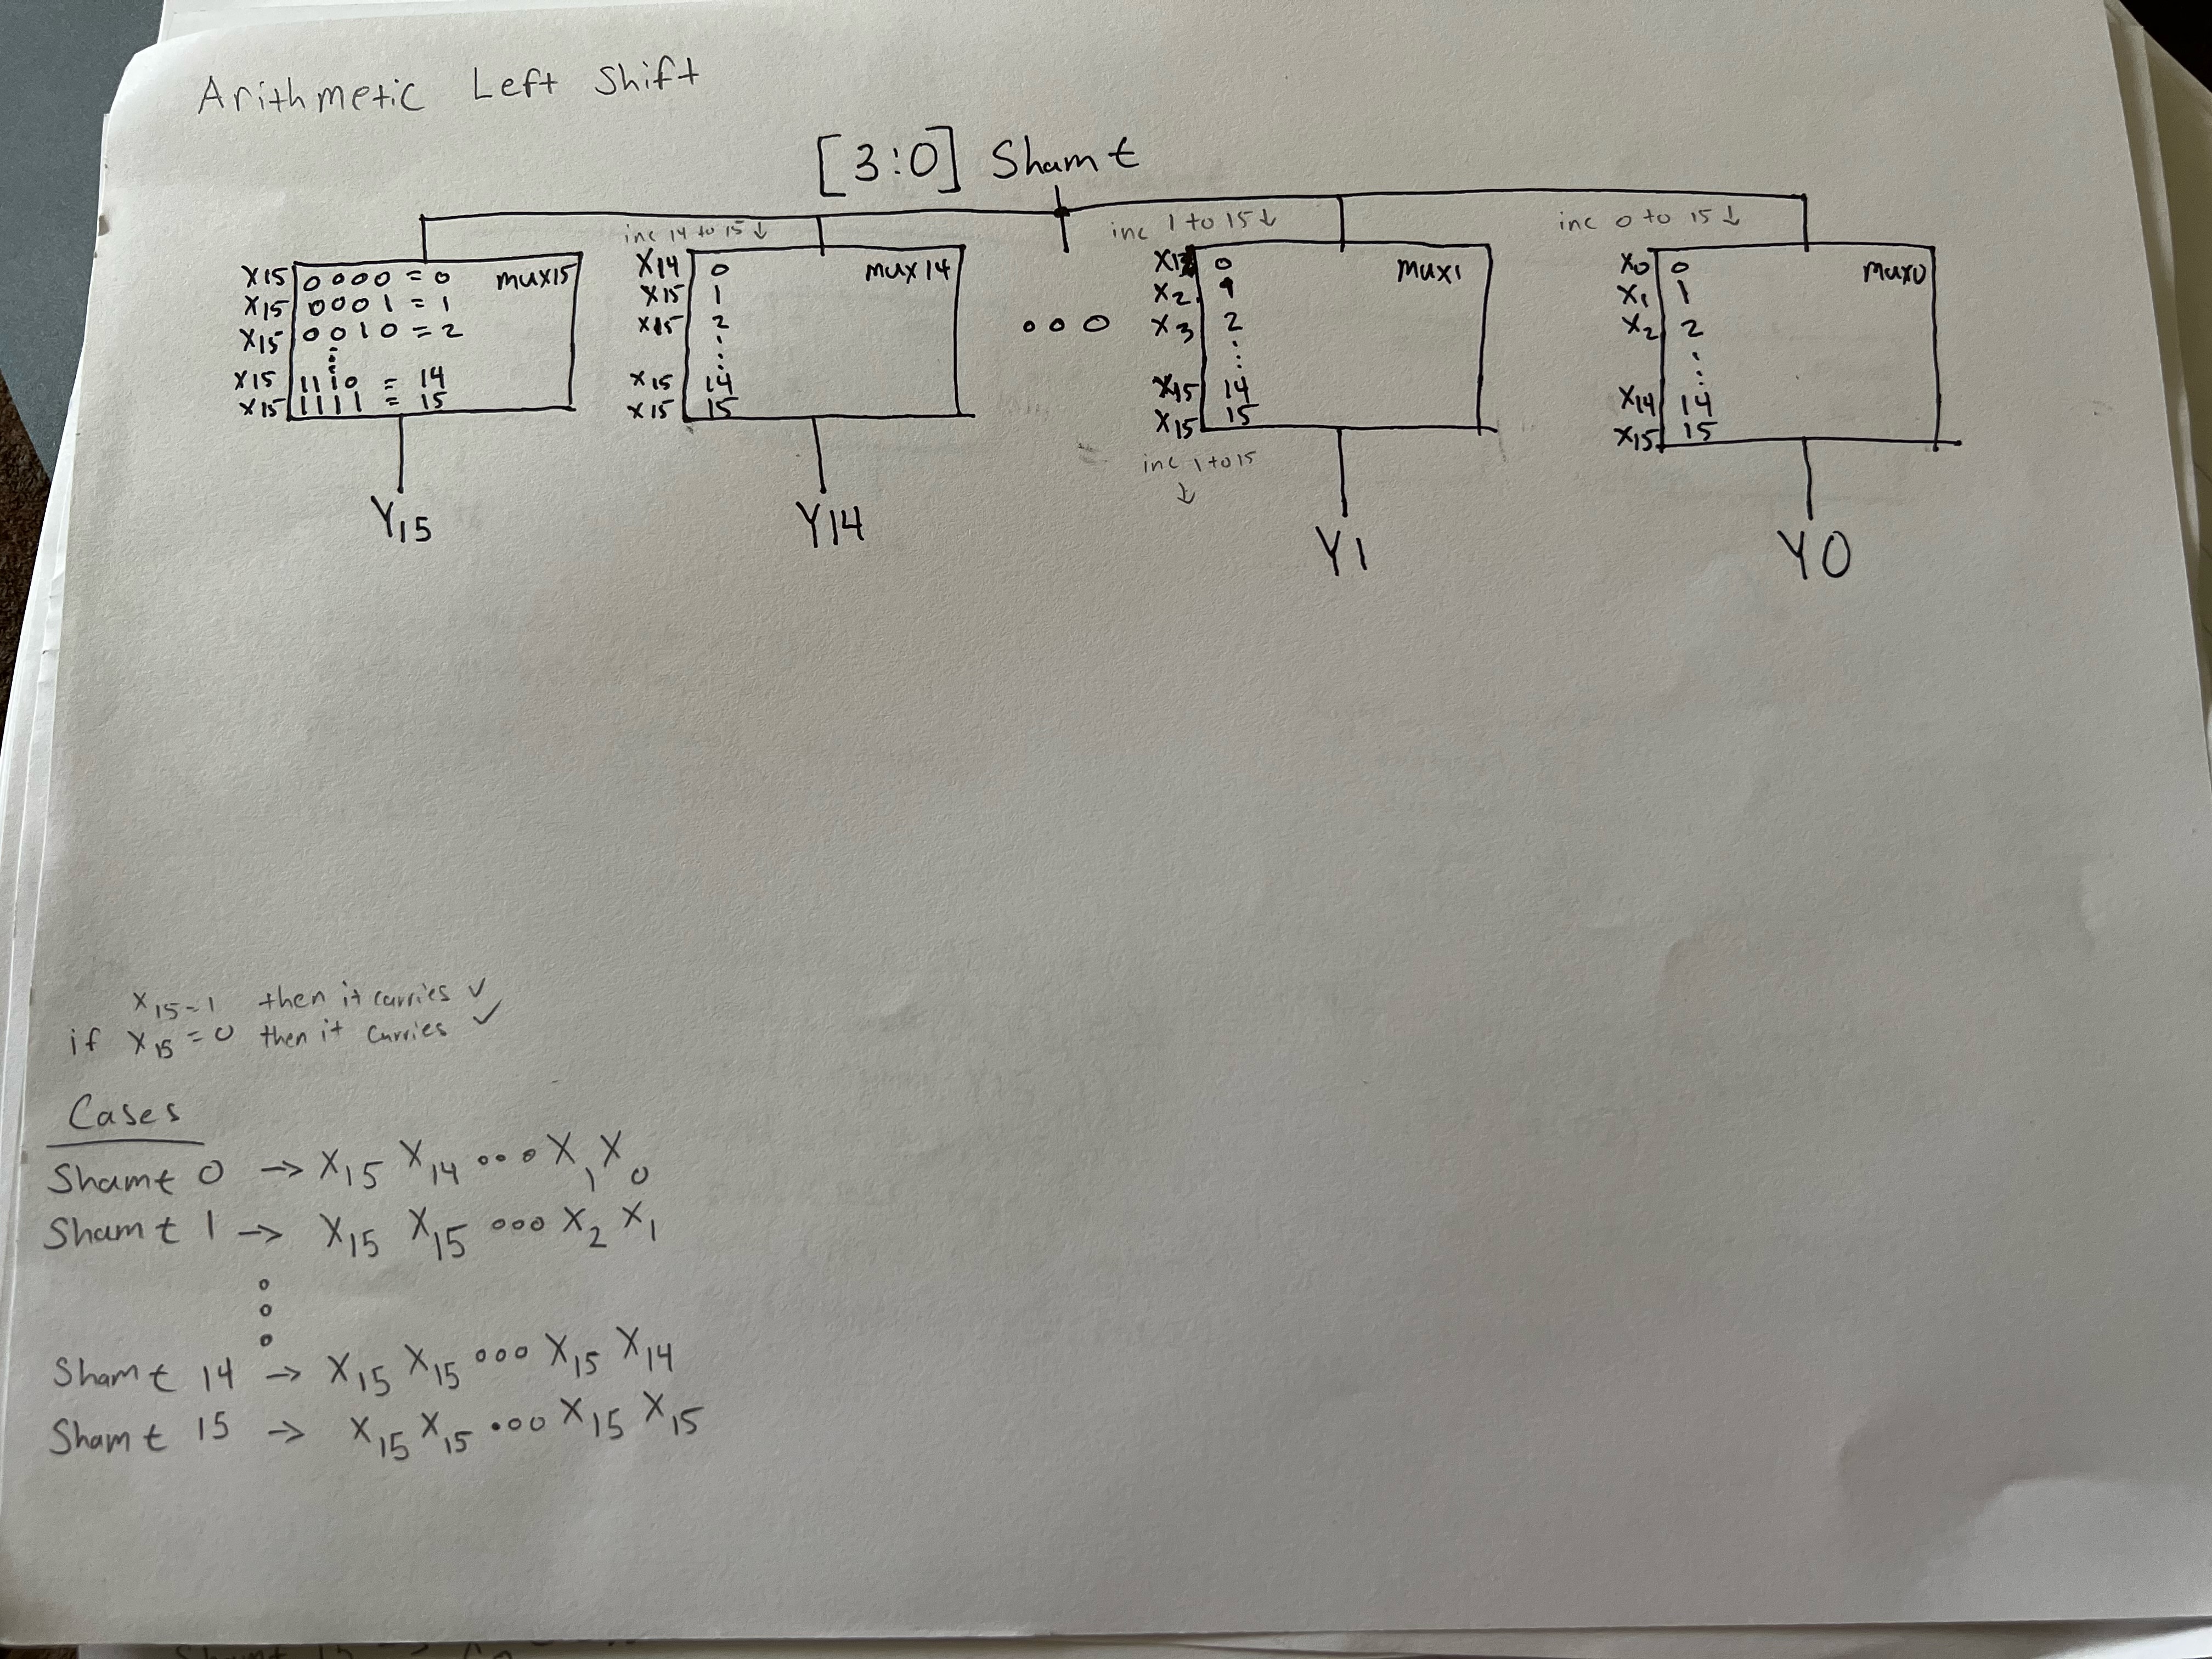 Arithmetic Left Shift
[3:0] Shamt
inc 14 to 15↓
inc 1 to 15↓
inc 0 to 15↓
X15 0000 = 0 mux15
X15 0001 = 1
X15 0010 = 2
⋮
X15 1110 = 14
X15 1111 = 15
Y15
X14 0 mux14
X15 1
X15 2
⋮
X15 14
X15 15
Y14
ooo
0 mux1
X2 1
X3 2
⋮
X15 14
X15 15
inc 1 to 15
↓
Y1
X0 0 mux0
X1 1
X2 2
⋮
X14 14
X15 15
Y0
X15-1 then it carries ✓
if X15 = 0 then it carries ✓
Cases
Shamt 0 → X15 X14 ooo X1 X0
Shamt 1 → X15 X15 ooo X2 X1
ooo
Shamt 14 → X15 X15 ooo X15 X14
Shamt 15 → X15 X15 ooo X15 X15